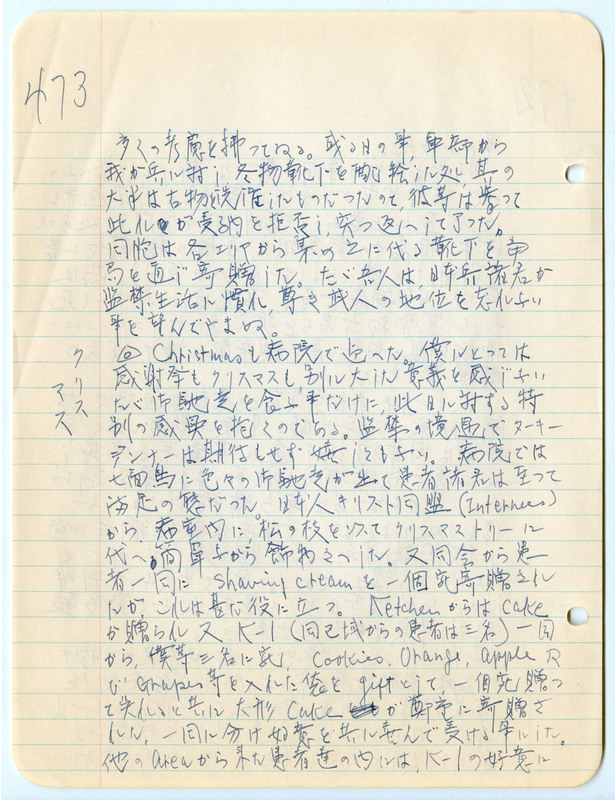 473
多くの考慮を拂つてゐる。或る日の事、軍部から
我が兵に対し、冬物靴下を配給した処、其の
大半は古物を洗濯したものだつたので、彼等は誓つて
此れが受納を拒否し、突つ返へして了つた。
同胞は各エリアから集め之に代る靴下を、当
局を通じ寄贈した。たゞ吾人は、日本兵諸君が
監禁生活に慣れ、尊き武人の地位を忘れない
事を祈んでやまぬ。
クリスマス
◎ Christmasも病院で迎へた。僕にとつては
感謝祭もクリスマスも、別に大した意義を感じない
たゞ御馳走を食ふ事だけに、此日に対する特
別の感興を抱くのである。監禁の境遇でターキー
デンナーは期待もせず嬉しくもない。病院では
七面鳥に色々の御馳走が出て患者諸君は至つて
満足の態だつた。日本人キリスト同盟 (Internees)
から、病室内に、松の枝を以てクリスマストリーに
代へ、簡単乍ら飾物さへした。又同会から患
者一同に shaving creamを一個宛寄贈され
たが、これは甚だ役に立つ。Ketchenからは cake
が贈られ 又 K-1 (同区域からの患者は三名) 一同
から、僕等三名に宛、cookies, Orange, apple 及
び Grapes等を入れた袋を giftとして、一個宛贈つ
て呉れると共に 大形 cake が病室に寄贈さ
れた。一同に分け好意を共に喜んで受ける事にした。
他の areaから来た患者達の内には、K-1の好意に